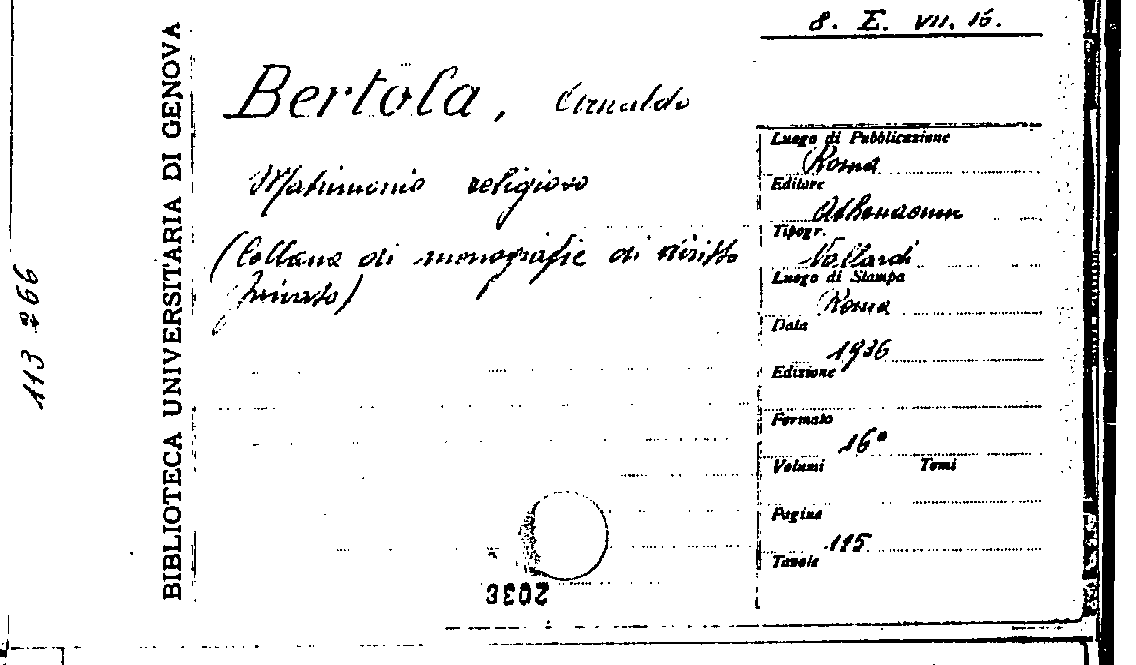 8. E. VII. 16.
Bertola, Arnaldo
Matrimonio religioso
(Collana di monografie di diritto
privato)
Luogo di Pubblicazione
Roma
Editore
Athenaeum
Tipogr.
Vallardi
Luogo di Stampa
Roma
Data
1936
Edizione
Formato
16°
Volumi Tomi
Pagine
115
Tavole
BIBLIOTECA UNIVERSITARIA DI GENOVA
113 266